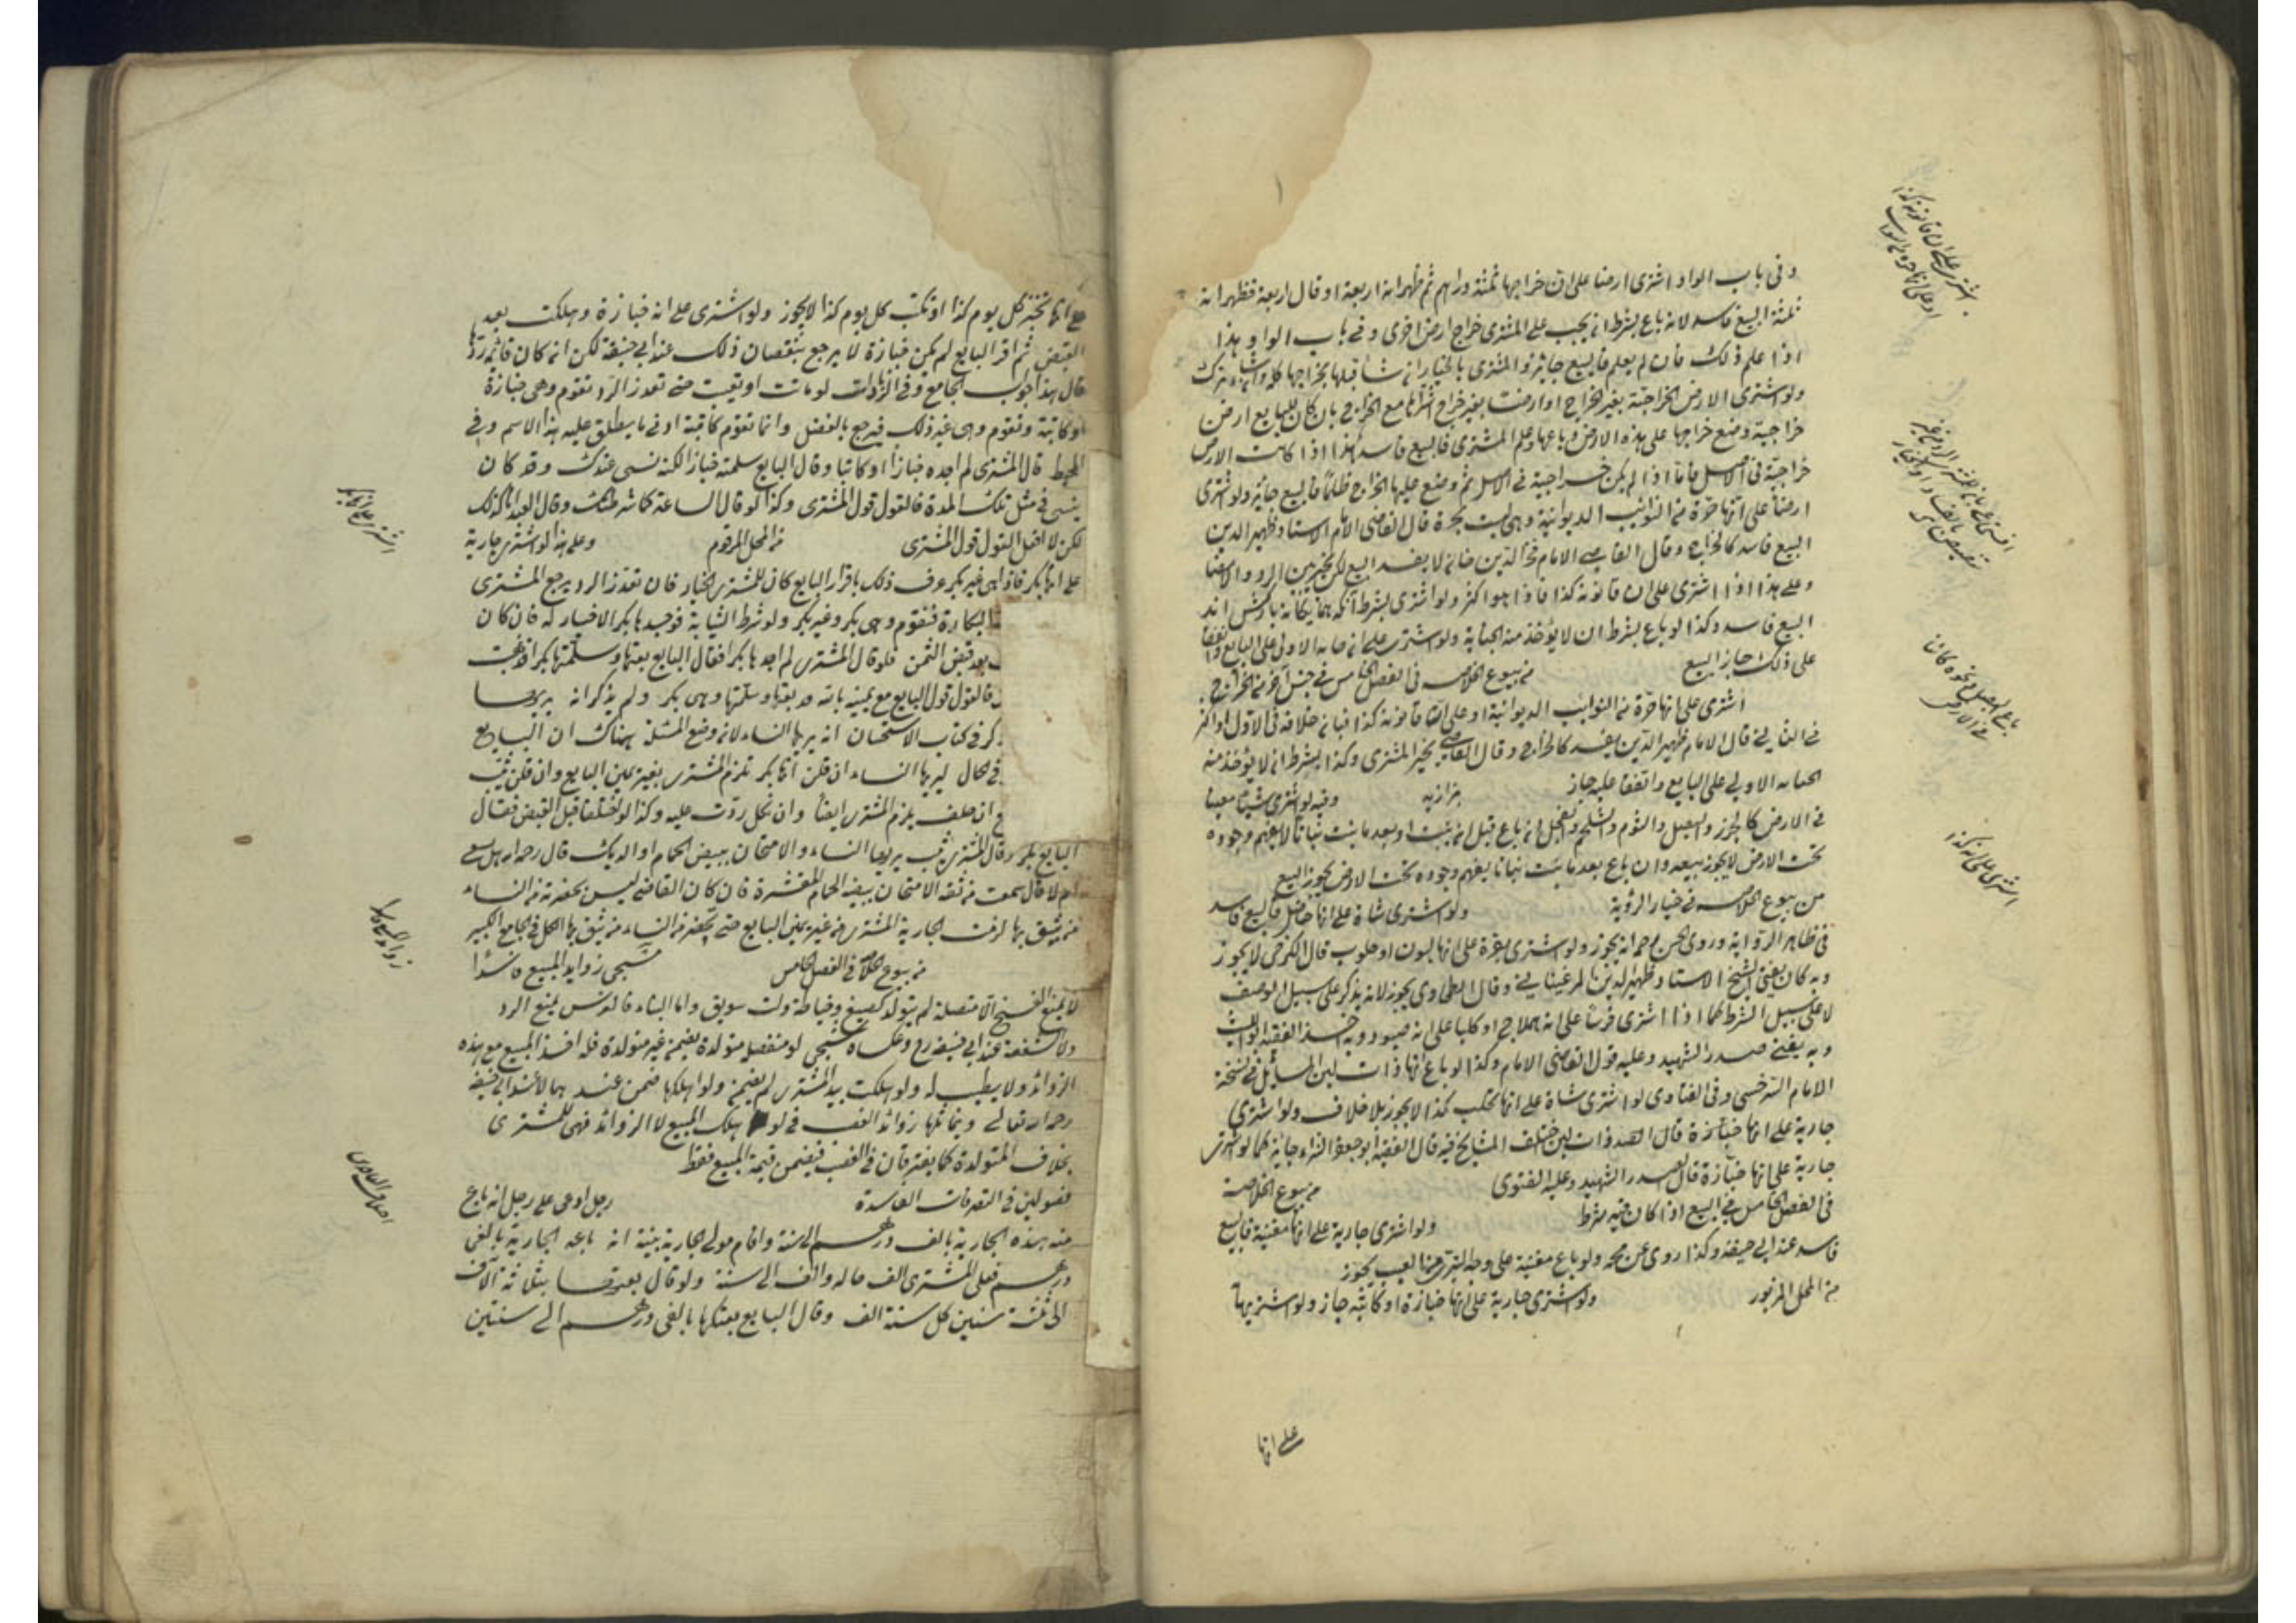 وفى باب الواو اشترى ارضا على ان خراجها ثلثة دراهم ثم ظهر انه اربعة او قال اربعة فظهر انه
ثلثة البيع فاسد لانه باع بشرط ان يجب على المشترى خراج ارض اخرى وفى باب الواو هذا
اذا علم ذلك فان لم يعلم فالبيع جائز والمشترى بالخيار ان شاء قبلها بخراجها كله وان شاء ترك
ولو اشترى الارض الخراجية بغير الخراج او ارضا بغير خراج اشتراها مع الخراج بان كان للبايع ارض
خراجية وضع خراجها على هذه الارض وباعها وعلم المشترى فالبيع فاسد هذا اذا كانت الارض
خراجية فى الاصل فاما اذا لم يكن خراجية فى الاصل ثم وضع عليها الخراج ظلما فالبيع جائز ولو اشترى
ارضا على انها حرة من النوائب الديوانية وهى ليست بحرة قال القاضى الامام الاستاد ظهير الدين
البيع فاسد كالخراج وقال القاضى الامام فخر الدين خان لا يفسد البيع لكن يخير بين الرد والامضا
وعلى هذا اذا اشترى على ان قانونه كذا فاذا هو اكثر ولو اشترى بشرط آنكه
البيع فاسد وكذا لو باع بشرط ان لا يؤخذ منه الجباية ولو اشترى على ان جباية الاولى على البايع واتفقا
على ذلك جاز البيع من بيوع الخلاصه فى الفصل الخامس فى جنس آخر من الخراج
اشترى على انها حرة من النوائب الديوانية او على ان قانونه كذا فبان خلافه فى الاول او اكثر
فى الثانى قال الامام ظهير الدين يفسد كالخراج وقال القاضى يخير المشترى وكذا بشرط ان لا يؤخذ منه
الجبايه الاولى على البايع واتفقا عليه جاز بزازيه وفيه لو اشترى شيئا مغيبا
فى الارض كالجزر والبصل والثوم والشلجم والفجل ان باع قبل ان ينبت او بعد ما نبت نباتا لا يفهم وجوده
تحت الارض لا يجوز بيعه وان باع بعد ما نبت نباتا يفهم وجوده تحت الارض يجوز البيع
من بيوع الخلاصه فى خيار الرؤية ولو اشترى شاة على انها حامل فالبيع فاسد
فى ظاهر الرواية وروى الحسن رحمه انه يجوز ولو اشترى بقرة على انها لبون او حلوب قال الكرخى لا يجوز
وبه كان يفتى الشيخ الاستاد ظهير الدين المرغينانى وقال الطحاوى يجوز لانه يذكر على سبيل الوصف
لا على سبيل الشرط كما اذا اشترى فرسا على انه هملاج او كلبا على انه صيود وبه اخذ الفقيه ابو الليث
وبه يفتى صدر الشهيد وعليه قول القاضى الامام وكذا لو باع انها ذات لبن المسائل فى نسخة
الامام السرخسى وفى الفتاوى لو اشترى شاة على انها تحلب كذا لا يجوز بلا خلاف ولو اشترى
جارية على انها خبازة قال الصدر ذات لبن اختلف المشايخ فيه قال الفقيه ابو جعفر الشراء جائز كما لو اشترى
جارية على انها خبازة قال الصدر الشهيد وعليه الفتوى من بيوع الخلاصة
فى الفصل الخامس فى البيع اذا كان فيه شرط ولو اشترى جارية على انها مغنية فالبيع
فاسد عند ابى حنيفة وكذا روى عن محمد ولو باع مغنية على وجه التبرى من العيب يجوز
من المحل المزبور ولو اشترى جارية على انها خبازة او كاتبة جاز ولو اشتريها
على انها
اشترى على ان قانونه كذا
او على انها حرة من النوائب
باع البصل ونحوه كائنا
فى الارض
اشترى على انه كذا
على انها تخبز كل يوم كذا او تكتب كل يوم كذا لا يجوز ولو اشترى على انه خبازة وهلكت بعد
القبض ثم اقر البايع لم يكن خبازة لا يرجع بنقصان ذلك عند ابى حنيفة لكن انه كان قائمه ردها
قال هذا جواب الجامع وفى الزيادات لو ماتت او تعيبت حتى تعذر الرد تقوم وهى خبازة
او كاتبة وتقوم وهى غير ذلك فيرجع بالفضل وانما تقوم كاتبة ادنى ما يطلق عليه هذا الاسم وفى
المحيط قال المشترى لم اجده خبازا او كاتبا وقال البايع سلمته خبازا لكنه نسى عندك وقد كان
ينسى فى مثل تلك المدة فالقول قول المشترى وكذا لو قال الساعة كما شرطت وقال العبد انا كذلك
لكن لا افعل القول قول المشترى من المحل المرقوم وعلى هذا لو اشترى جارية
على انها بكر فاذا هى غير بكر عرف ذلك باقرار البايع كان للمشترى الخيار فان تعذر الرد يرجع المشترى
البكارة فتقوم وهى بكر وغير بكر ولو شرط الثيابة فوجدها بكرا لا خيار له فان كان
بعد قبض الثمن فلو قال المشترى لم اجدها بكرا فقال البايع بعتها وسلمتها بكرا فذهبت
فالقول قول البايع مع يمينه بالله قد بعتها وسلمتها وهى بكر ولم يذكر انه يريها
كر فى كتاب الاستحسان انه يريها النساء لانه وضع المسئلة هناك ان البايع
فى الحال ليريها النساء ان قلن انها بكر تلزم المشترى بغير يمين البايع وان قلن ثيب
ان حلف يلزم المشترى ايضا وان نكل ردت عليه وكذا لو اختلفا قبل القبض فقال
البايع بكر وقال المشترى ثيب يريها النساء والامتحان ببيض الحمام او الديك قال رحمه الله هل سمعت
ام لا قال سمعت من ثقة الامتحان ببيضة الحمام المقشرة فان كان القاضى ليس بحضرته من النساء
من يثق بها لزمت الجارية المشترى من غير يمين البايع حتى يحضر من النساء من يثق بها الكل فى الجامع الكبير
من بيوع الخلاصه فى الفصل الخامس شجى زوايد المبيع
لا يمنع الفسخ الا متصلة لم يتولد كصبغ وخياطة ولت سويق واما البناء فالغرس يمنع الرد
ولا شفعة عند ابى حنيفه رح وعكساه شجى لو منفصل متولدة يضمنه غير متولدة فله اخذ المبيع مع هذه
الزوائد ولا يطيب له ولو هلكت بيد المشترى لم يضمن ولو اهلكها ضمن عندهما لا عند ابى حنيفه
رحمه الله تعالى وبماثلها زوائد الغصب فى لو هلك المبيع لا الزوائد فهى للمشترى
بخلاف المتولدة كما يفترقان فى الغصب فيضمن قيمة المبيع فقط
فصولين فى التصرفات الفاسدة رجل ادعى على رجل انه باع
منه هذه الجارية بالف درهم الى سنة واقام مولى الجارية بينة انه باعه الجارية بالفى
درهم فعلى المشترى الف حاله والف الى سنة ولو قال بعتها بثلاثة آلاف
الى ثلثة سنين كل سنة الف وقال البايع بعتكها بالفى درهم الى سنتين